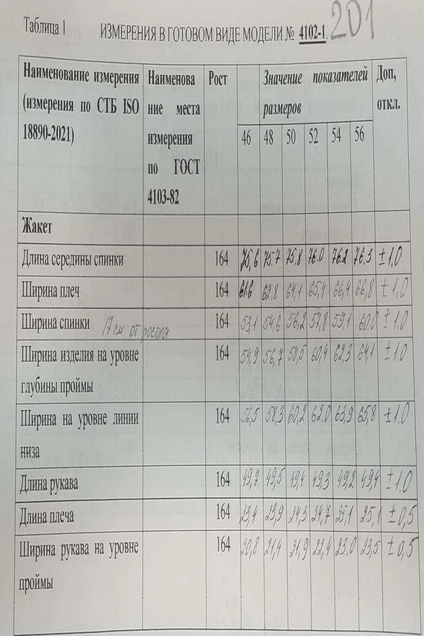 Таблица 1
ИЗМЕРЕНИЯ В ГОТОВОМ ВИДЕ МОДЕЛИ № 4102-1 201
Наименование измерения (измерения по СТБ ISO 18890-2021) Наименова ние места измерения по ГОСТ 4103-82 Рост Значение показателей размеров Доп, откл.
46 48 50 52 54 56
Жакет
Длина середины спинки 164 75,6 75.7 75,8 76.0 76.2 76,3 ±1,0
Ширина плеч 164 61,6 62,8 64,1 65,4 66,4 66,8 ±1,0
Ширина спинки 17 см от ростка 164 53,1 54,6 56,2 57,8 59,1 60,0 ±1.0
Ширина изделия на уровне глубины проймы 164 54,9 56,7 58,5 60,4 62,3 64,1 ±1.0
Ширина на уровне линии низа 164 56,5 58,3 60,2 62,0 63,9 65,8 ±1.0
Длина рукава 164 49,7 49,5 49,4 49,3 49,2 49,4 ±1.0
Длина плеча 164 23,4 23,9 24,3 24,7 25,1 25,1 ±0,5
Ширина рукава на уровне проймы 164 20,8 21,4 21,9 22,4 23,0 23,5 ±0,5